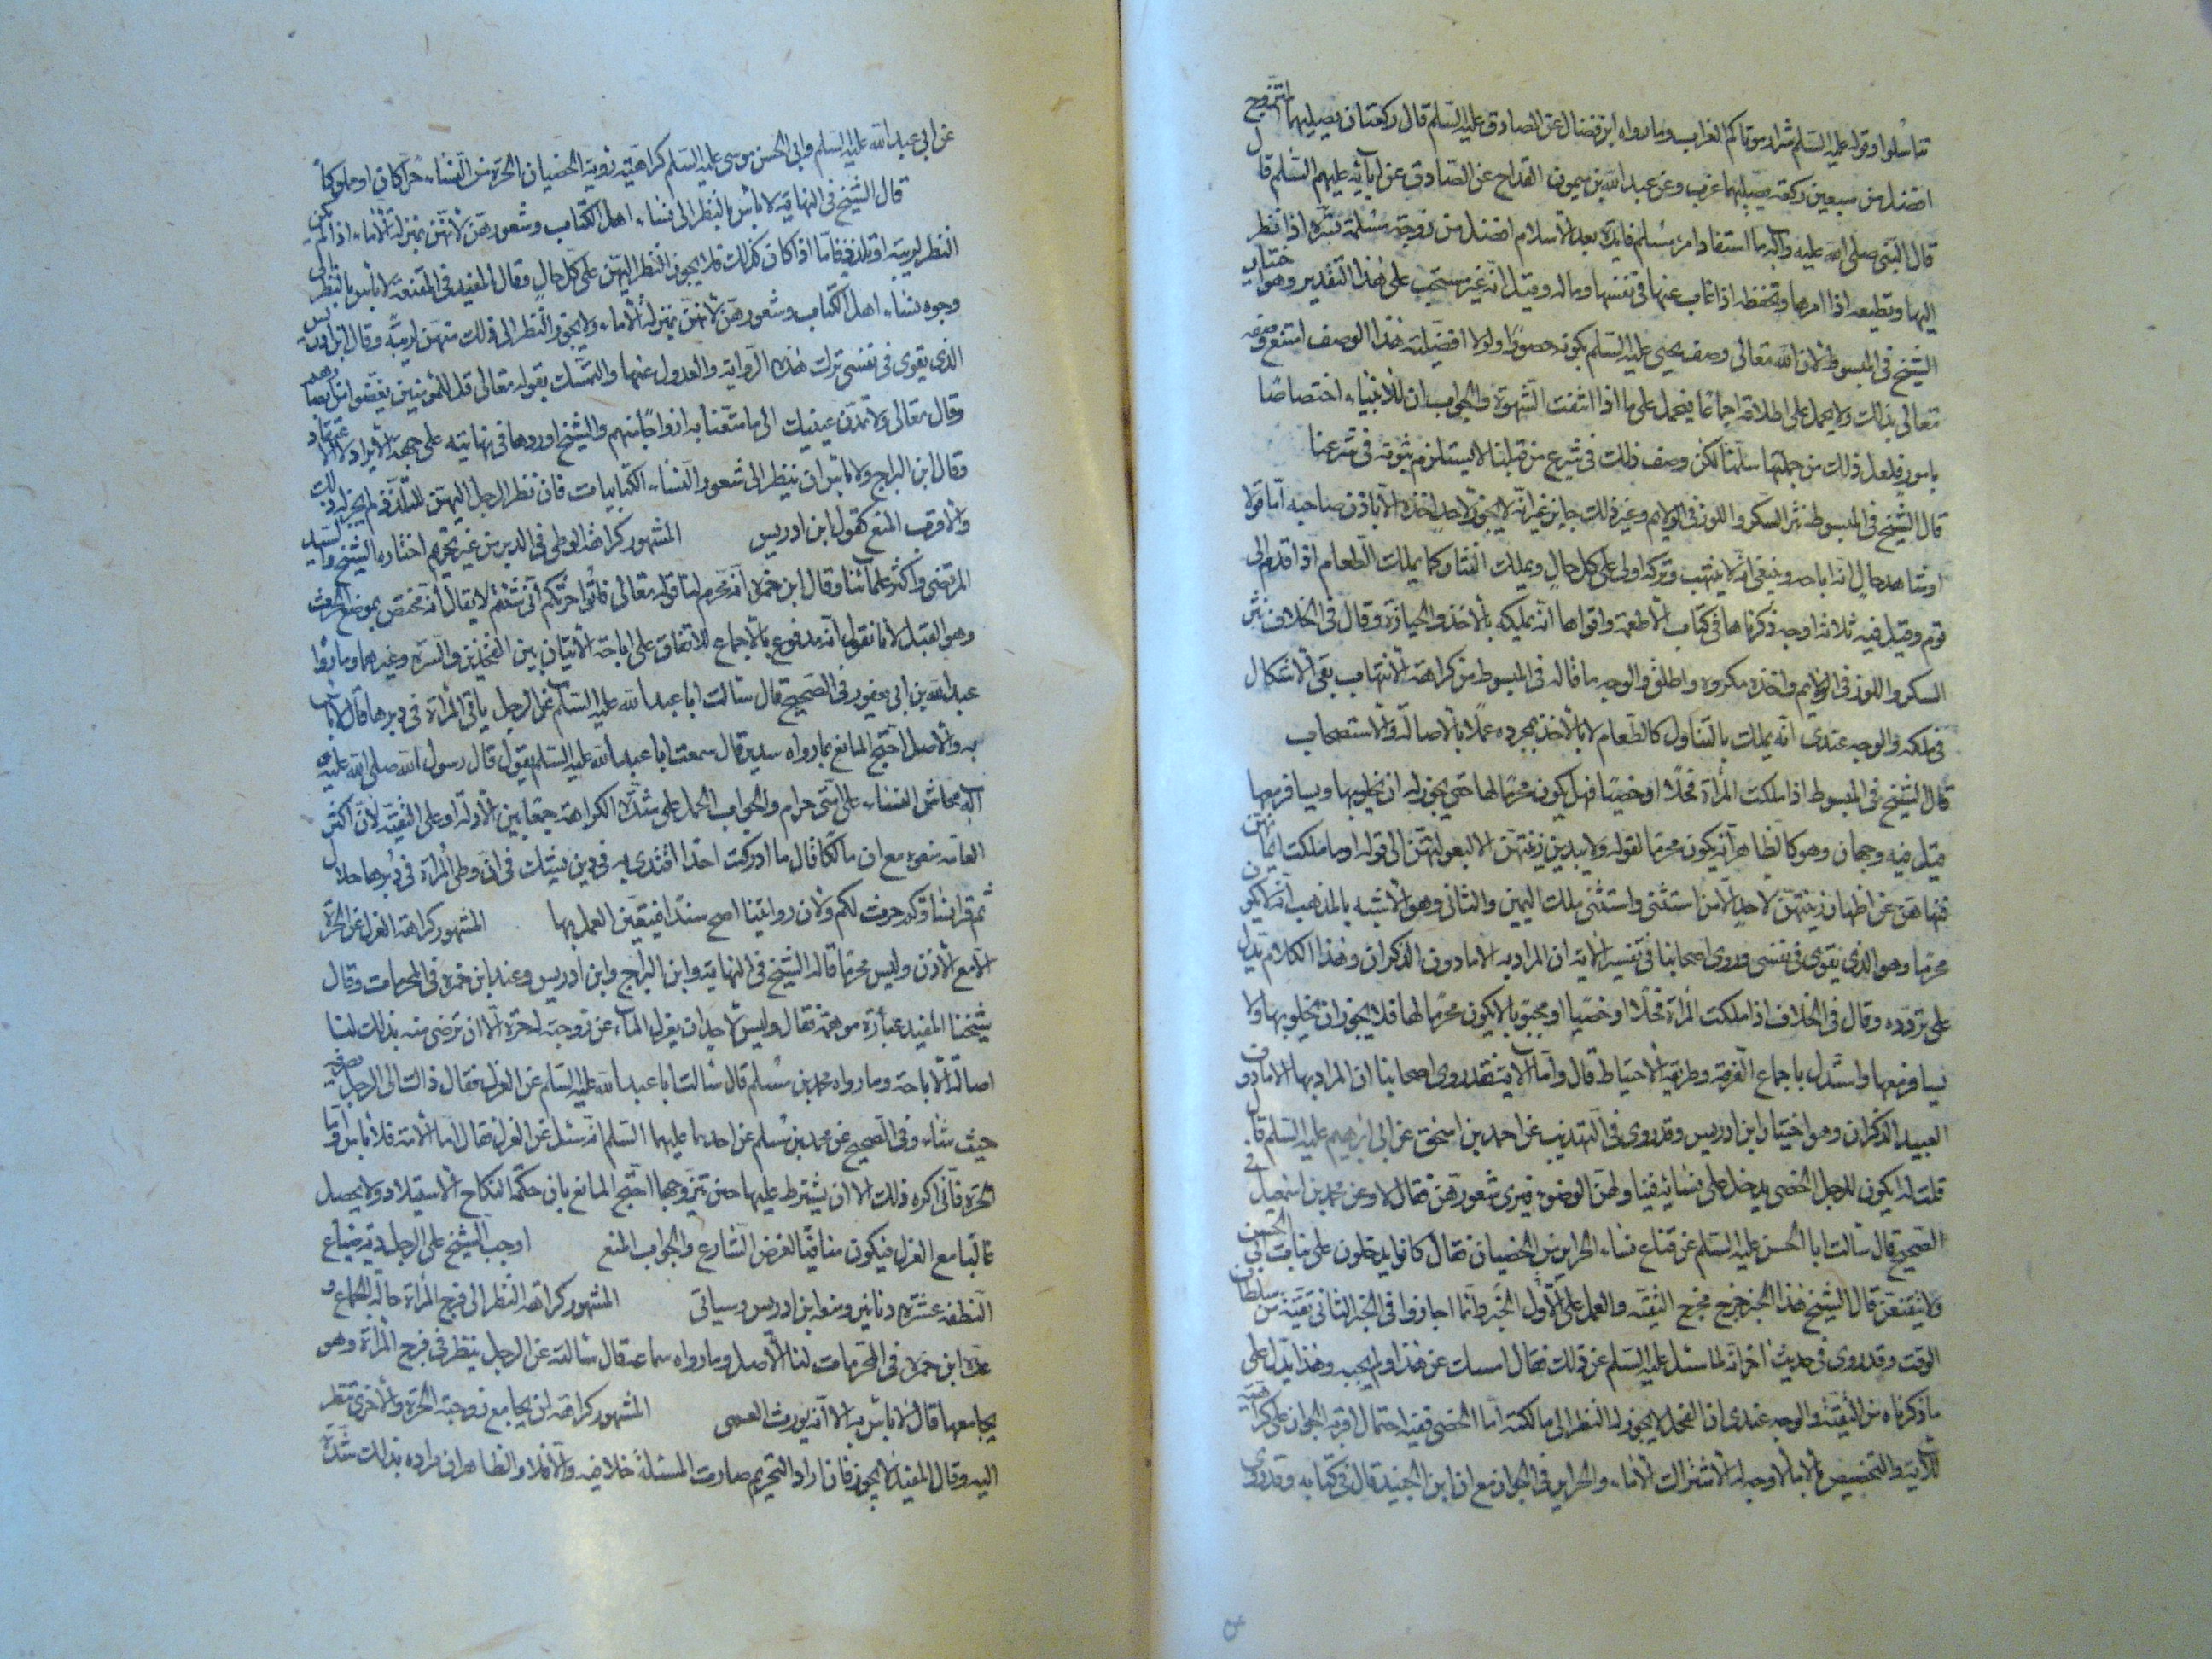 تناسلوا وقوله عليه السلم شرار موتاكم العزاب وما رواه ابن فضال عن الصادق عليه السلم قال ركعتان يصليهما المتزوج
افضل من سبعين ركعة يصليها عزب وعن عبد الله بن ميمون القداح عن الصادق عن آبائه عليهم السلم قال
قال النبي صلى الله عليه وآله ما استفاد امرء مسلم فايدة بعد الاسلام افضل من زوجة مسلمة تسره اذا نظر
اليها وتطيعه اذا امرها وتحفظه اذا غاب عنها في نفسها وماله وقيل انه غير مستحب على هذا التقدير وهو اختيار
الشيخ في المبسوط لان الله تعالى وصف يحيى عليه السلم بكونه حصورا ولولا افضلية هذا الوصف امتنع وصفه
تعالى بذلك ولا يحمل على اطلاقه اجماعا فيحمل على ما اذا انتفت الشهوة والجواب ان للانبياء اختصاصا
بامور فلعل ذلك من جملتها سلمنا لكن وصف ذلك في شرع من قبلنا لا يستلزم ثبوته في شرعنا
قال الشيخ في المبسوط نثر السكر واللوز في الولايم وغير ذلك جايز غير انه لا يجوز لاحد اخذه الا باذن صاحبه اما قولا
او شاهد حال انه اباحه وينبغي ان لا ينتهب وتركه اولى على كل حال ويملك النثار كما يملك الطعام اذا قدم الى
قوم وقيل فيه ثلاثة اوجه ذكرناها في كتاب الاطعمة واقواها انه يملكه بالاخذ والحيازة وقال في الخلاف نثر
السكر واللوز في الولايم واخذه مكروه واطلق والوجه ما قاله في المبسوط من كراهة الانتهاب بقي الاشكال
في ملكه والوجه عندي انه يملك بالتناول كالطعام لا بالاخذ بمجرده عملا بالاصالة والاستصحاب
قال الشيخ في المبسوط اذا ملكت المرأة فحلا او خصيا فهل يكون محرما لها حتى يجوز له ان يخلو بها ويسافر معها
قيل فيه وجهان وهو كالظاهر انه يكون محرما لقوله ولا يبدين زينتهن الا لبعولتهن الى قوله او ما ملكت ايمانهن
فنهاهن عن اظهار زينتهن لاحد الا من استثنى واستثنى ملك اليمين والثاني وهو الاشبه بالمذهب انه لا يكون
محرما وهو الذي يقوى في نفسي وروى اصحابنا في تفسير الآية ان المراد به الاماء دون الذكران وهذا الكلام يدل
على تردده وقال في الخلاف اذا ملكت المرأة فحلا او خصيا او مجبوبا لا يكون محرما لها فلا يجوز ان يخلو بها ولا
يسافر معها واستدل باجماع الفرقة وطريقة الاحتياط قال واما الآية فقد روى اصحابنا ان المراد بها الاماء دون
العبيد الذكران وهو اختيار ابن ادريس وقد روى في التهذيب عن احمد بن اسحق عن ابي ابرهيم عليه السلم قال
قلت له يكون للرجل الخصي يدخل على نسائه فيناولهن الوضوء فيرى شعورهن فقال لا وعن محمد بن اسمعيل في
الصحيح قال سألت ابا الحسن عليه السلم عن قناع نساء الحراير من الخصيان فقال كانوا يدخلون على بنات ابي الحسن
ولا يتقنعن قال الشيخ هذا الخبر خرج مخرج التقية والعمل على الاول الخبر وانما اجازوا في الخبر الثاني تقية من سلطان
الوقت وقد روى في حديث اخر انه لما سئل عليه السلم عن ذلك فقال امسك عن هذا ولم يجبه وهذا يدل على
ما ذكرناه من التقية والوجه عندي ان الفحل لا يجوز له النظر الى مالكته اما الخصي ففيه احتمال اقربه الجواز على كراهية
للآية والتخصيص بالاماء لا وجه له لاشتراك الاماء والحراير في الجواز مع ان ابن الجنيد قال في كتابه وقد روى
عن ابي عبد الله عليه السلم وابي الحسن موسى عليه السلم كراهية رؤية الخصيان الحرة من النساء حرا كان او مملوكا
قال الشيخ في النهاية لا بأس بالنظر الى نساء اهل الكتاب وشعورهن لانهن بمنزلة الاماء اذا لم يكن
النظر لريبة او تلذذ فاما اذا كان كذلك فلا يجوز النظر اليهن على كل حال وقال المفيد في المقنعة لا بأس بالنظر الى
وجوه نساء اهل الكتاب وشعورهن لانهن بمنزلة الاماء ولا يجوز النظر الى ذلك منهن لريبة وقال ابن ادريس
الذي يقوى في نفسي ترك هذه الرواية والعدول عنها والتمسك بقوله تعالى قل للمؤمنين يغضوا من ابصارهم
وقال تعالى ولا تمدن عينيك الى ما متعنا به ازواجا منهم والشيخ اوردها في نهايته على جهة الايراد لا الاعتقاد
وقال ابن البراج ولا بأس ان ينظر الى شعور النساء الكتابيات فان نظر الرجل اليهن للتلذذ لم يجز له ذلك
والاقرب المنع كقول ابن ادريس المشهور كراهة الوطي في الدبر من غير تحريم اختاره الشيخ والسيد
المرتضى واكثر علمائنا وقال ابن حمزة انه محرم لنا قوله تعالى فأتوا حرثكم انى شئتم لا يقال انه مختص بموضع الحرث
وهو القبل لانا نقول انه مدفوع بالاجماع للاتفاق على اباحة الاتيان بين الفخذين والسرة وغيرهما وما رواه
عبد الله بن ابي يعفور في الصحيح قال سألت ابا عبد الله عليه السلم عن الرجل يأتي المرأة في دبرها قال لا بأس
به والاصل احتج المانع بما رواه سدير قال سمعت ابا عبد الله عليه السلم يقول قال رسول الله صلى الله عليه و
آله محاش النساء على امتي حرام والجواب الحمل على شدة الكراهة جمعا بين الادلة او على التقية لان اكثر
العامة منعوه مع ان مالكا قال ما ادركت احدا اقتدي به في ديني يشك في ان وطي المرأة في دبرها حلال
ثم قرأ نساؤكم حرث لكم ولان روايتنا اصح سندا فيتعين العمل بها المشهور كراهة العزل عن الحرة
الا مع الاذن وليس محرما قاله الشيخ في النهاية وابن البراج وابن ادريس وعند ابن حمزة في المحرمات وقال
شيخنا المفيد عبارة موهمة فقال وليس لاحد ان يعزل الماء عن زوجة له حرة الا ان ترضى منه بذلك لنا
اصالة الاباحة وما رواه محمد بن مسلم قال سألت ابا عبد الله عليه السلم عن العزل فقال ذاك الى الرجل يصرفه
حيث شاء وفي الصحيح عن محمد بن مسلم عن احدهما عليهما السلم انه سئل عن العزل فقال اما الامة فلا بأس واما
الحرة فاني اكره ذلك الا ان يشترط عليها حين يتزوجها احتج المانع بان حكمة النكاح الاستيلاد ولا يحصل
غالبا مع العزل فيكون منافيا لغرض الشارع والجواب المنع اوجب الشيخ على الرجل دية ضياع
النطفة عشرة دنانير ومنع ابن ادريس وسيأتي المشهور كراهة النظر الى فرج المرأة حالة الجماع و
عده ابن حمزة في المحرمات لنا الاصل وما رواه سماعة قال سألته عن الرجل ينظر في فرج المرأة وهو
يجامعها قال لا بأس به الا انه يورث العمى المشهور كراهة ان يجامع زوجته الحرة والاخرى تنظر
اليه وقال المفيد لا يجوز فان اراد التحريم صارت المسئلة خلافية والا فلا والظاهر ان مراده بذلك شدة